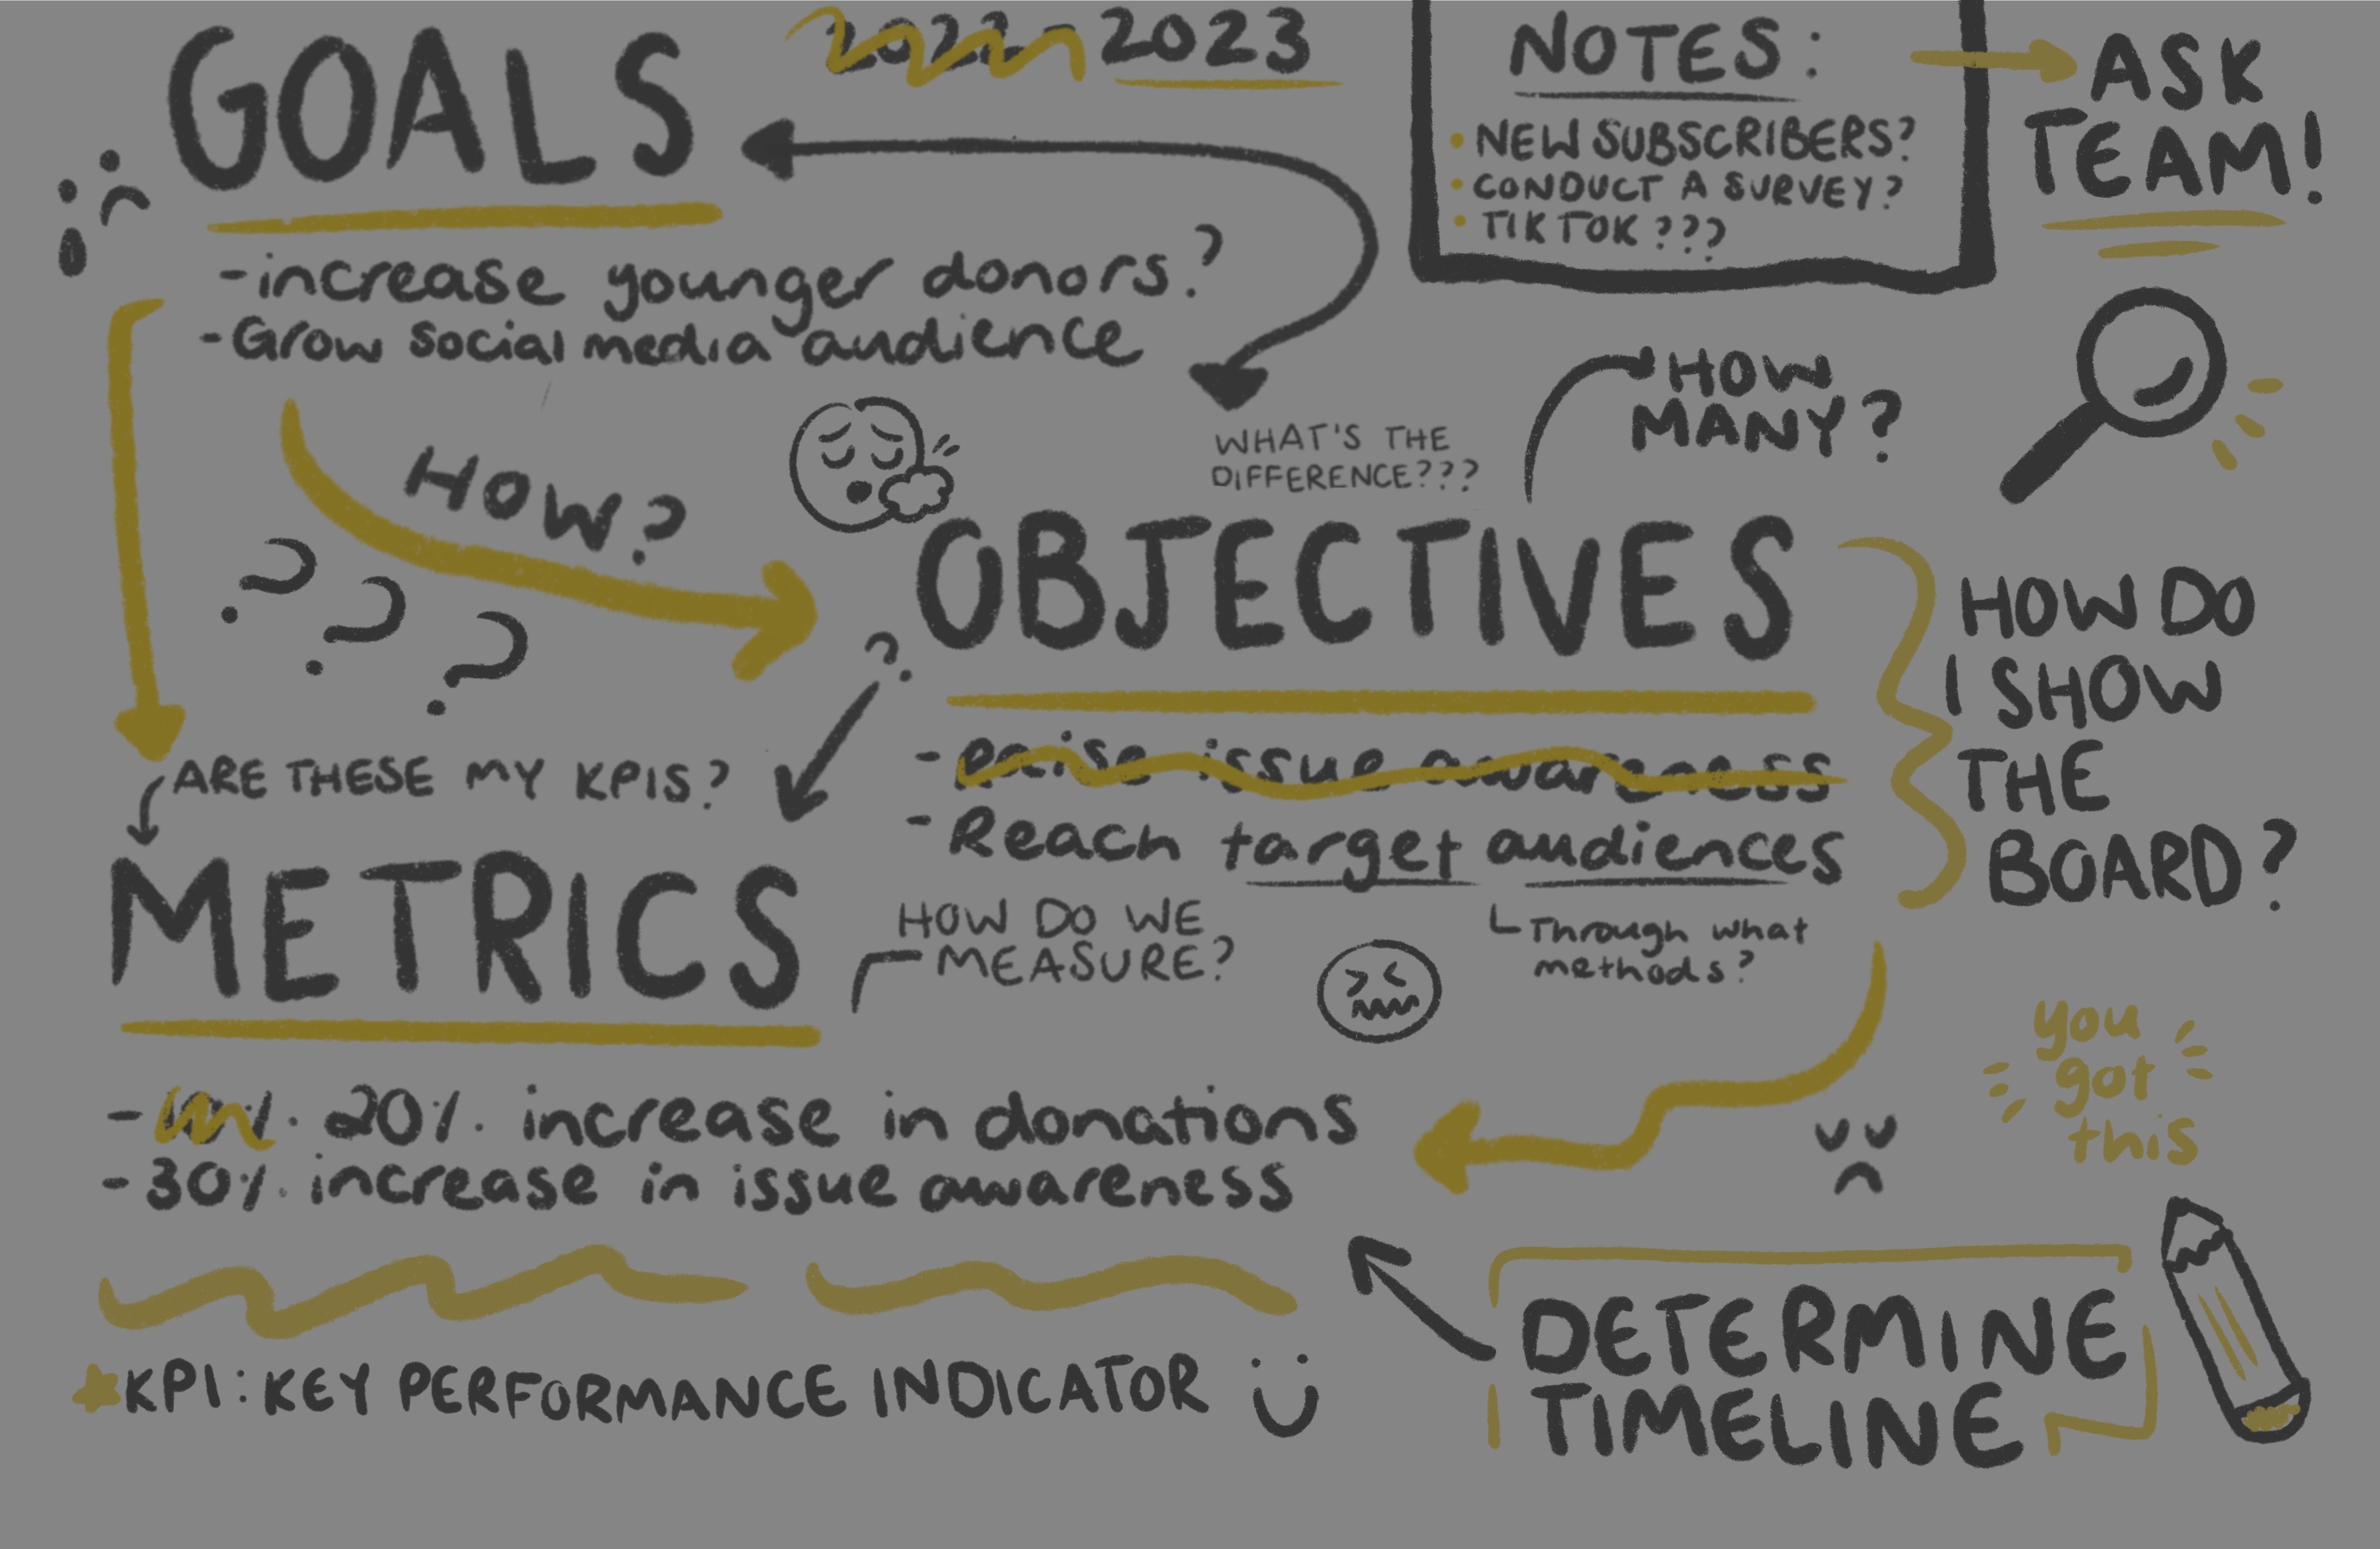 GOALS
2022- 2023
NOTES:
• NEW SUBSCRIBERS?
• CONDUCT A SURVEY?
• TIKTOK???
ASK
TEAM!
-increase younger donors?
-Grow social media audience
HOW?
???
WHAT'S THE
DIFFERENCE???
HOW
MANY?
OBJECTIVES
?
- Raise issue awareness
- Reach target audiences
Through what
methods?
HOW DO
I SHOW
THE
BOARD?
ARE THESE MY KPIS?
METRICS
HOW DO WE
MEASURE?
- 20% increase in donations
-30% increase in issue awareness
you
got
this
KPI: KEY PERFORMANCE INDICATOR
DETERMINE
TIMELINE